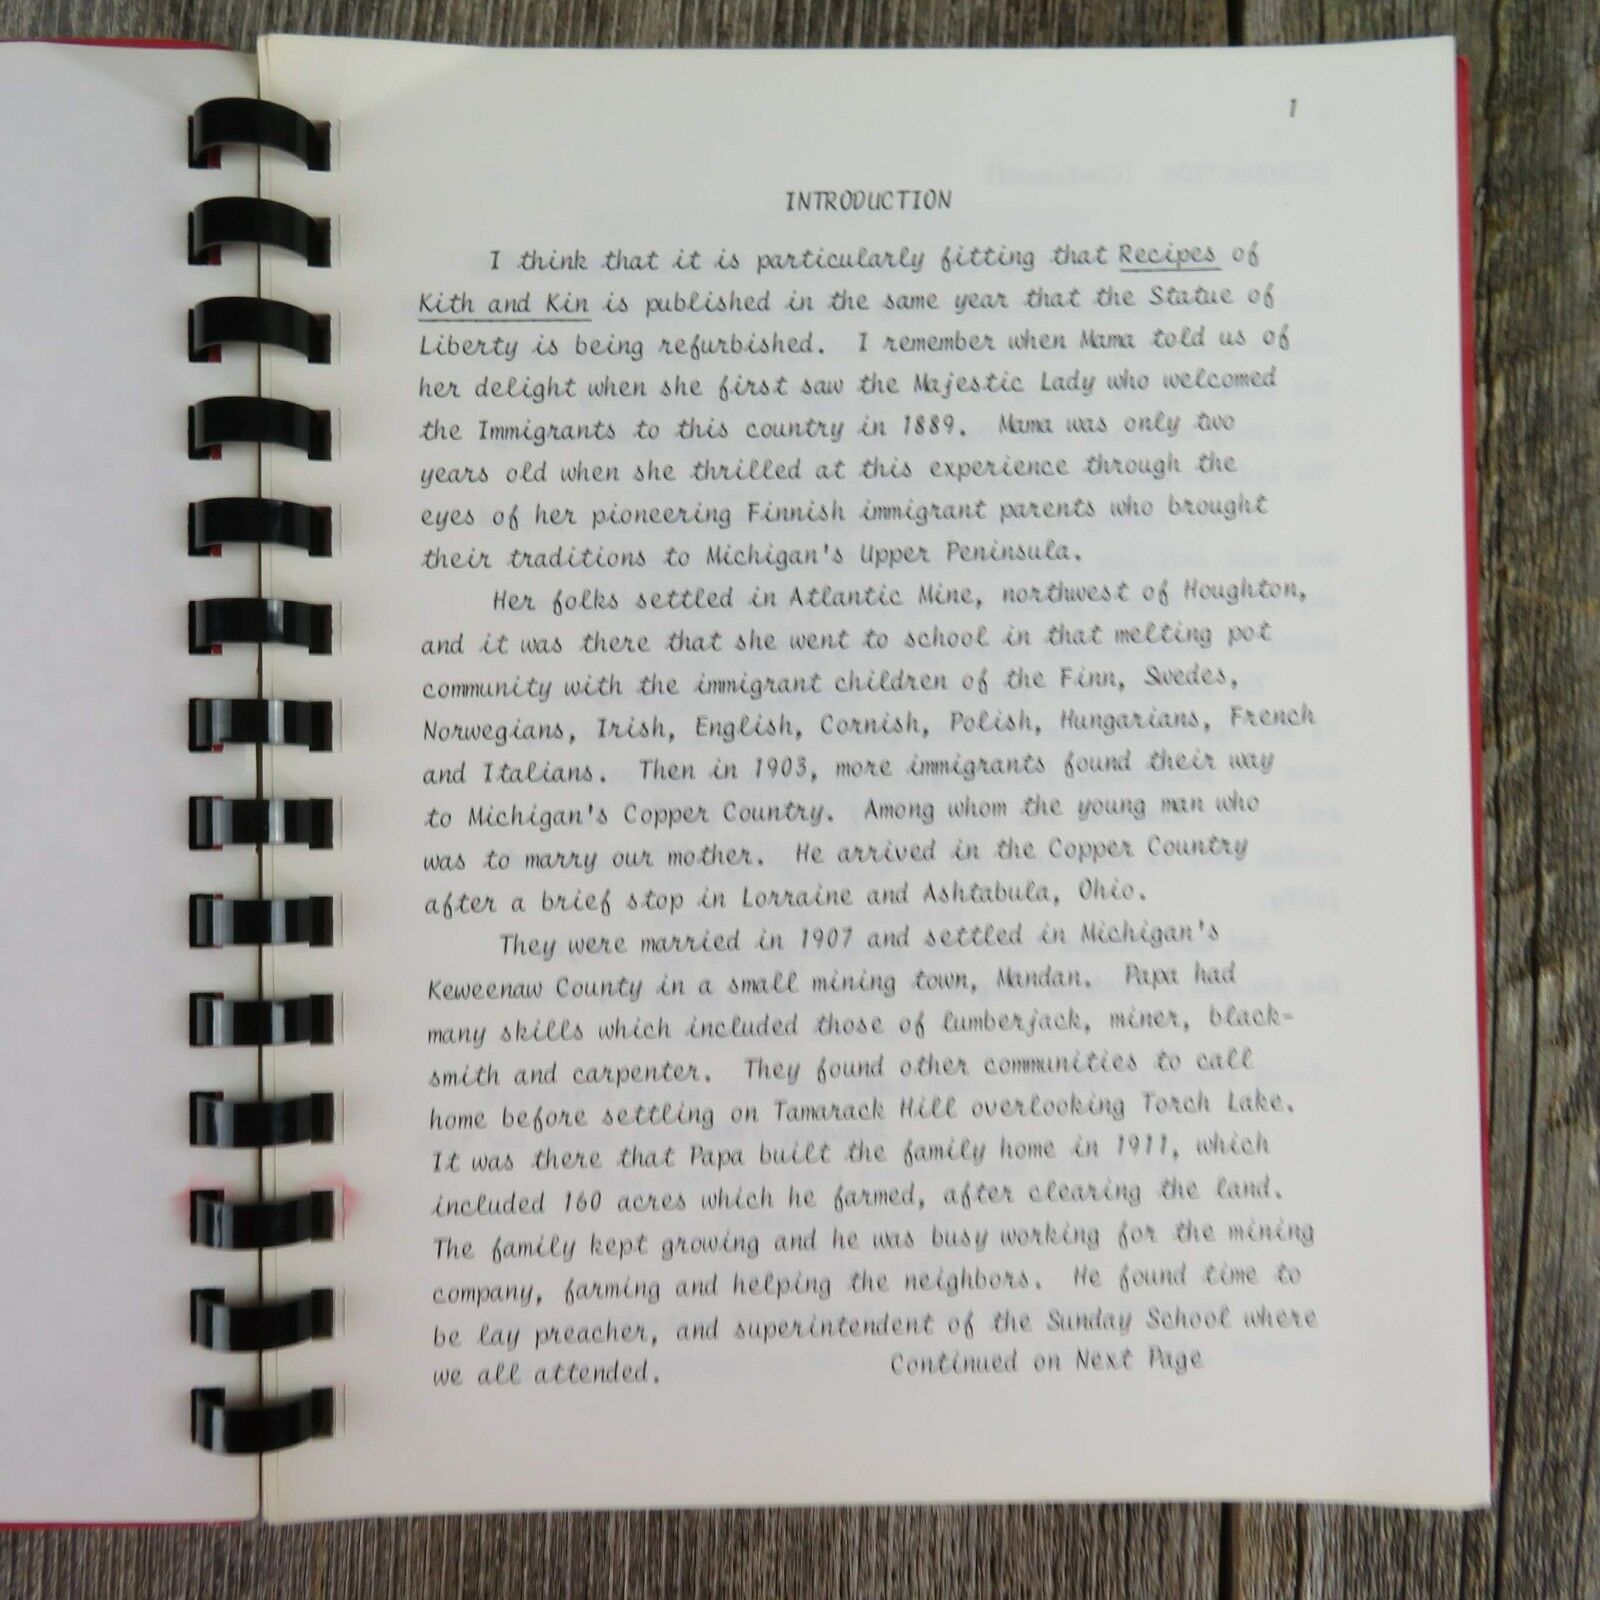 1
INTRODUCTION
I think that it is particularly fitting that Recipes of
Kith and Kin is published in the same year that the Statue of
Liberty is being refurbished. I remember when Mama told us of
her delight when she first saw the Majestic Lady who welcomed
the Immigrants to this country in 1889. Mama was only two
years old when she thrilled at this experience through the
eyes of her pioneering Finnish immigrant parents who brought
their traditions to Michigan's Upper Peninsula.
Her folks settled in Atlantic Mine, northwest of Houghton,
and it was there that she went to school in that melting pot
community with the immigrant children of the Finn, Swedes,
Norwegians, Irish, English, Cornish, Polish, Hungarians, French
and Italians. Then in 1903, more immigrants found their way
to Michigan's Copper Country. Among whom the young man who
was to marry our mother. He arrived in the Copper Country
after a brief stop in Lorraine and Ashtabula, Ohio.
They were married in 1907 and settled in Michigan's
Keweenaw County in a small mining town, Mandan. Papa had
many skills which included those of lumberjack, miner, black-
smith and carpenter. They found other communities to call
home before settling on Tamarack Hill overlooking Torch Lake.
It was there that Papa built the family home in 1911, which
included 160 acres which he farmed, after clearing the land.
The family kept growing and he was busy working for the mining
company, farming and helping the neighbors. He found time to
be lay preacher, and superintendent of the Sunday School where
we all attended. Continued on Next Page